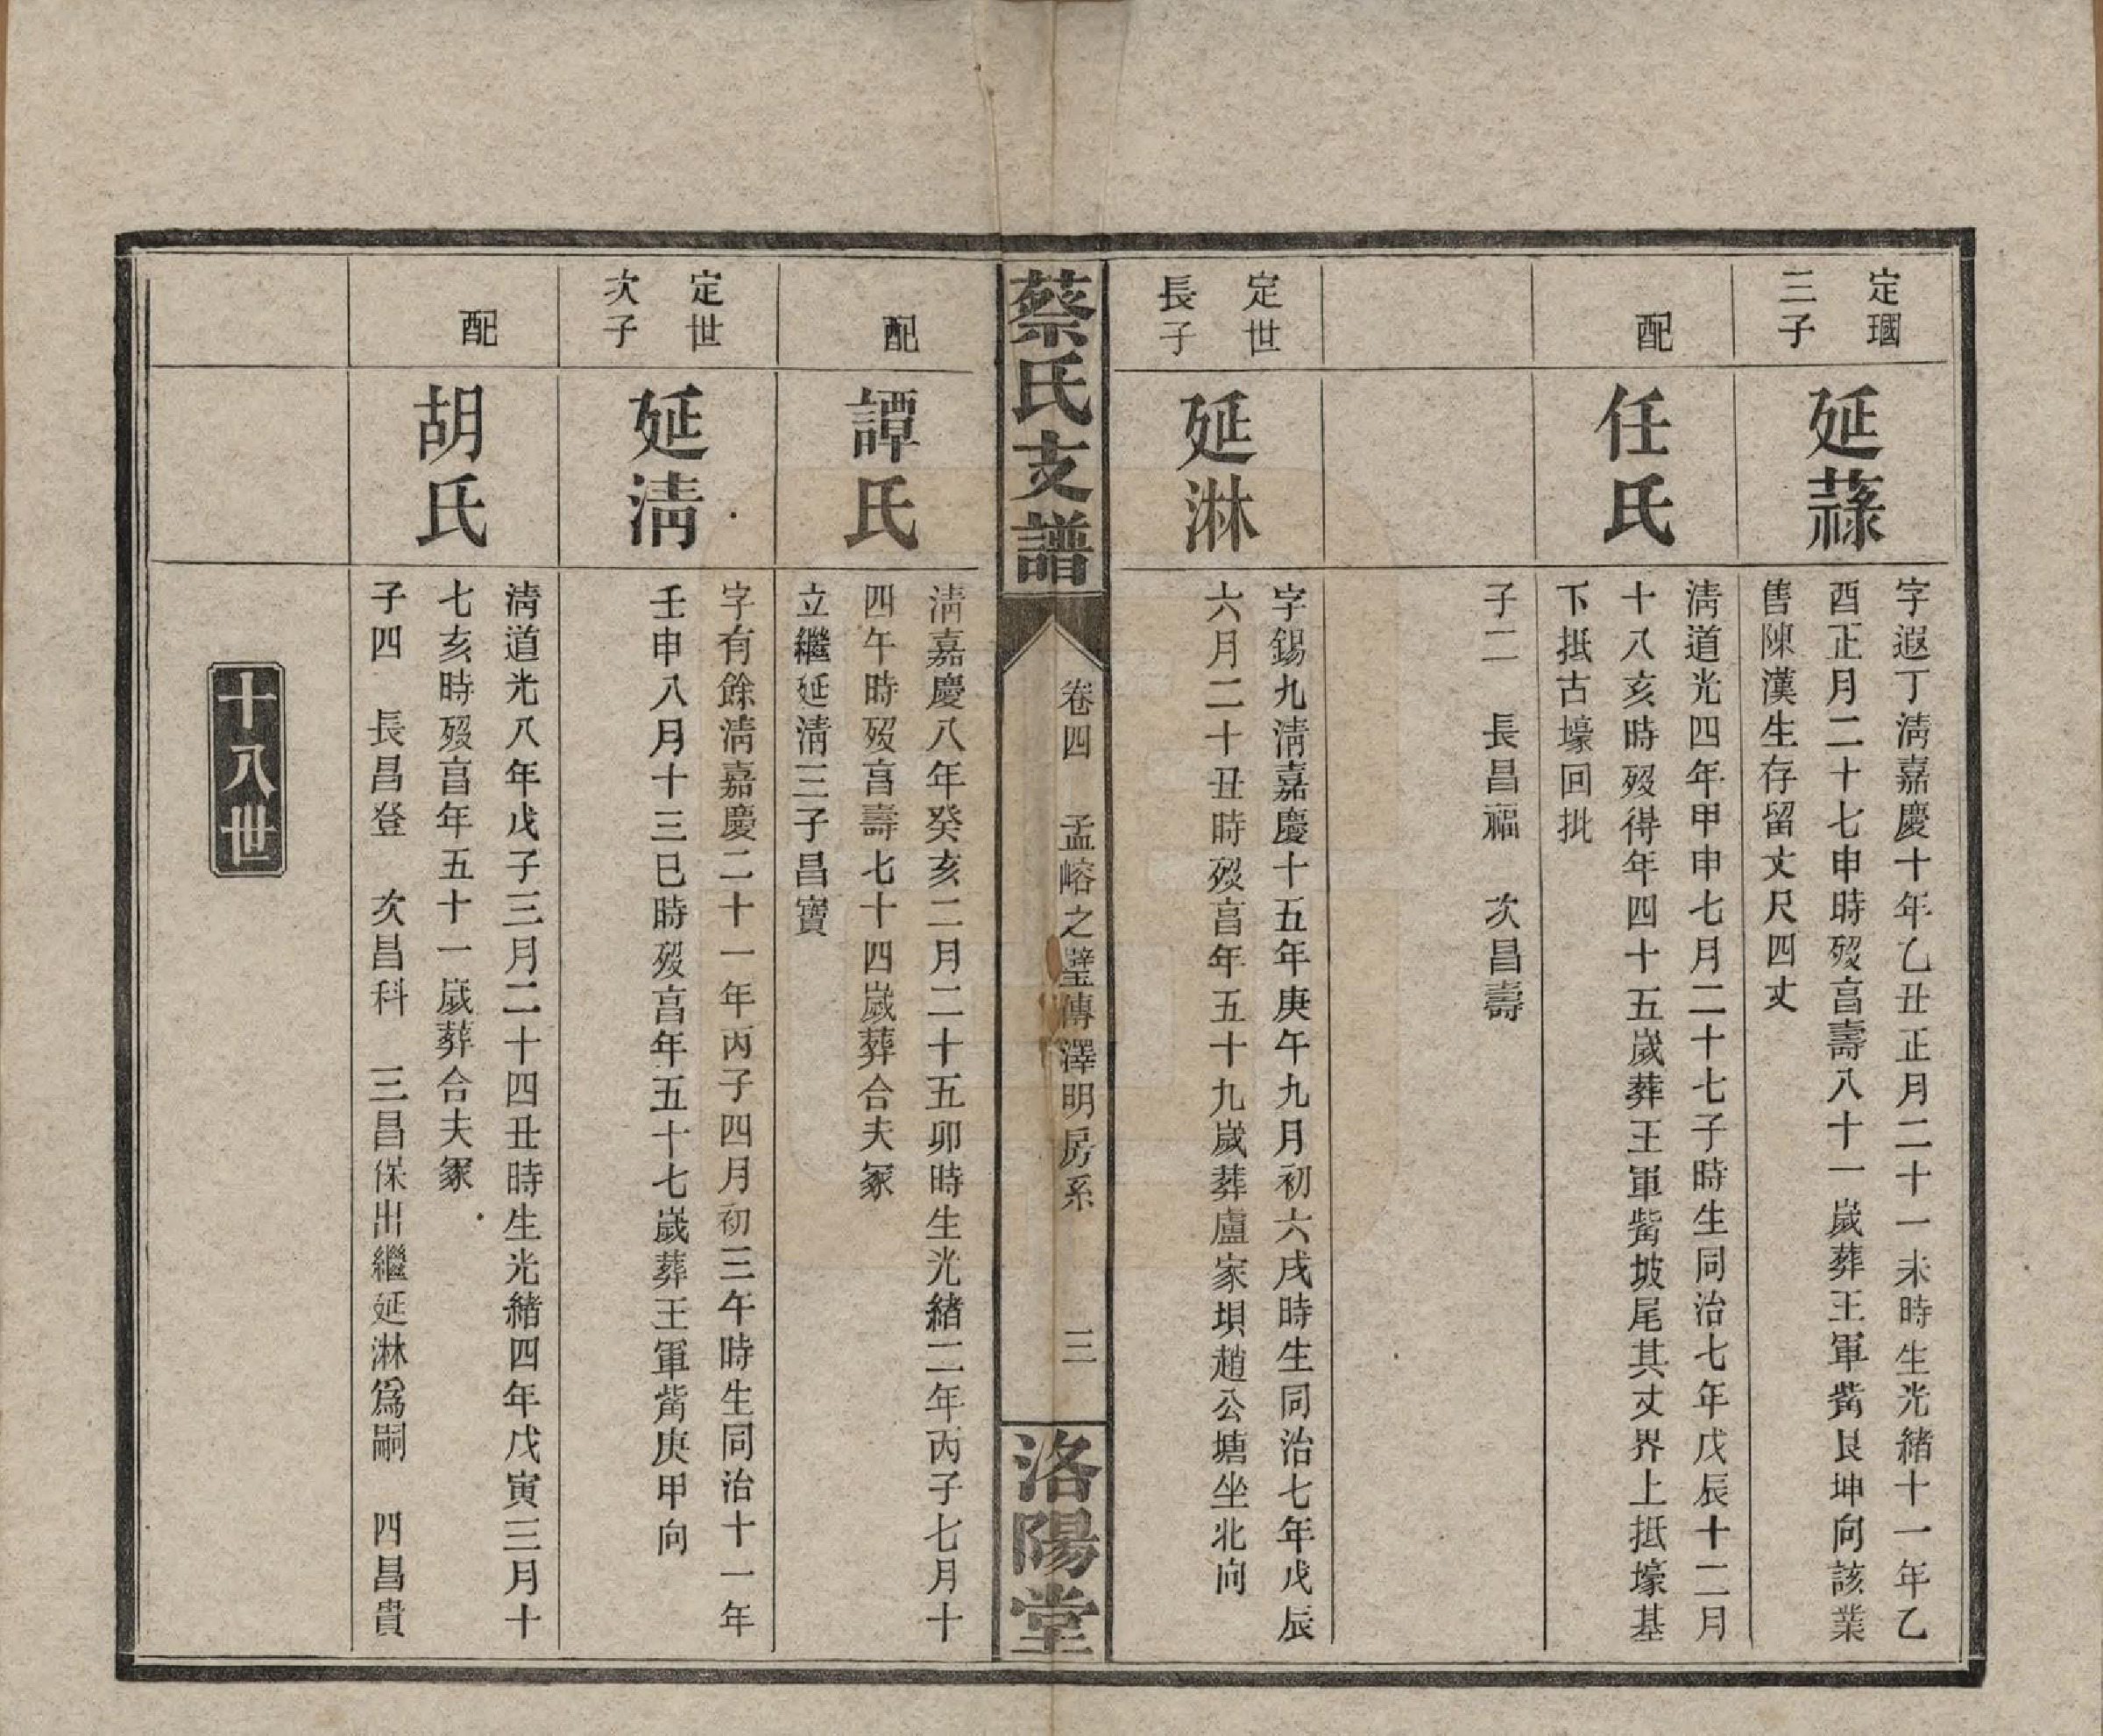 定㻽
三子
延蕬
字遐丁淸嘉慶十年乙丑正月二十一未時生光緒十一年乙
酉正月二十七申時歿亯壽八十一歲葬王軍觜艮坤向該業
售陳漢生存留丈尺四丈
配
任氏
淸道光四年甲申七月二十七子時生同治七年戊辰十二月
十八亥時歿得年四十五歲葬王軍觜坡尾其丈界上抵壕基
下抵古壕回批
子二　長昌福　次昌壽
定世
長子
延淋
字錫九淸嘉慶十五年庚午九月初六戌時生同治七年戊辰
六月二十丑時歿亯年五十九歲葬盧家垻趙公塘坐北向
蔡氏支譜
卷四　孟嵱之璧傳澤明房系　三
洛陽堂
配
譚氏
淸嘉慶八年癸亥二月二十五卯時生光緒二年丙子七月十
四午時歿亯壽七十四歲葬合夫冢
立繼延淸三子昌寶
定世
次子
延淸
字有餘淸嘉慶二十一年丙子四月初三午時生同治十一年
壬申八月十三巳時歿亯年五十七歲葬王軍觜庚甲向
配
胡氏
淸道光八年戊子三月二十四丑時生光緒四年戊寅三月十
七亥時歿亯年五十一歲葬合夫冢
子四　長昌登　次昌科　三昌保出繼延淋爲嗣　四昌貴
十八世